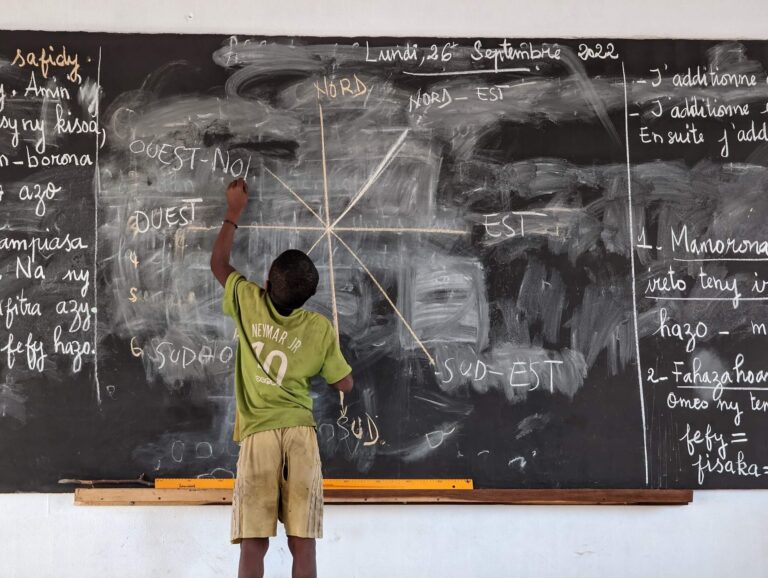 safidy.
Amin
syny kisoa,
n-borona
azo
ampiasa
Na ny
afitra azy.
fefy hazo.
Lundi, 26 Septembre 2022
NORD
NORD-EST
OUEST-NO
OUEST
EST
6
SUD-EST
SUD
NEYMAR JR
10
J'additionne
- J'additionne
Ensuite j'add
1. Mamorona
ireto teny
hazo - m
2- Fahazahoa
Omeo ny ten
fefy =
fisaka =